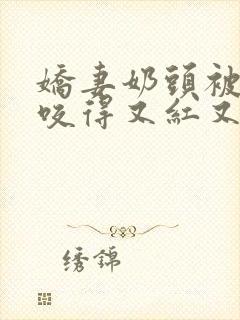 嬌妻奶頭被
咬得又紅又
绣錦